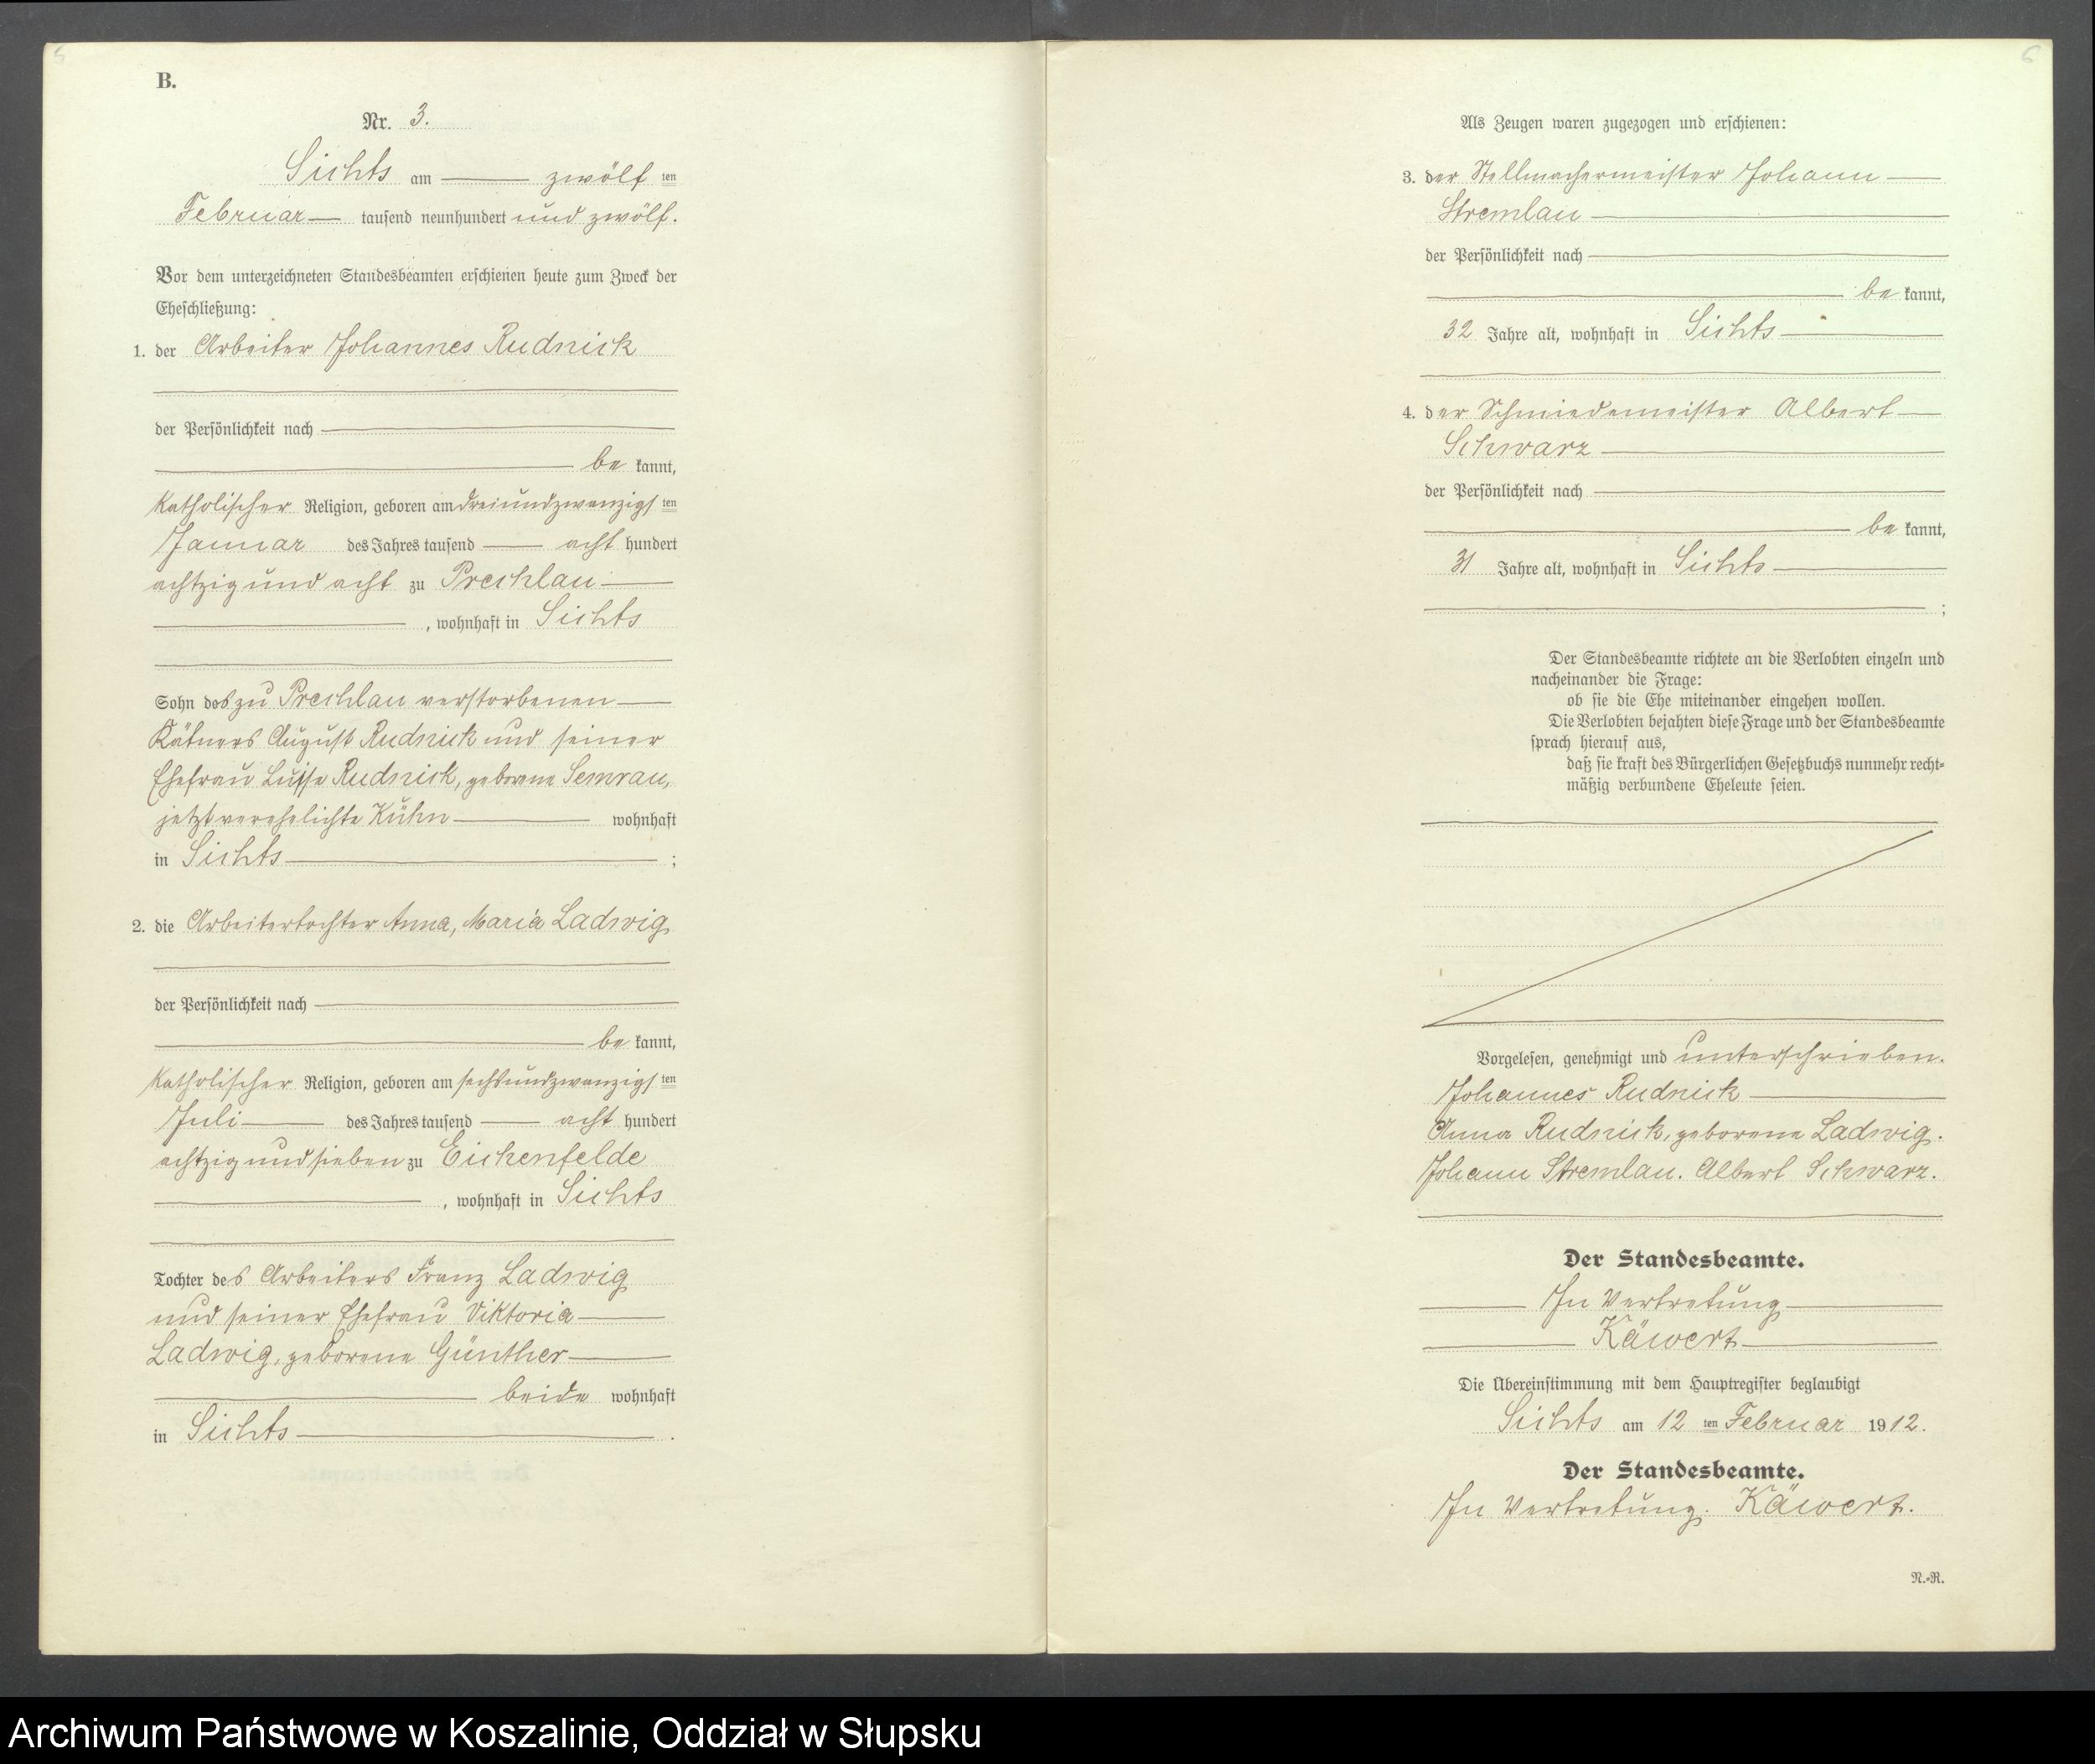 5
B.
Nr. 3.
Sichts am zwölf ten
Februar tausend neunhundert und zwölf.
Vor dem unterzeichneten Standesbeamten erschienen heute zum Zweck der
Eheschließung:
1. der Arbeiter Johannes Rudnick
der Persönlichkeit nach
be kannt,
katholischer Religion, geboren am dreiundzwanzigs ten
Januar des Jahres tausend acht hundert
achtzig und acht zu Prechlau
, wohnhaft in Sichts
Sohn des zu Prechlau verstorbenen
Kätners August Rudnick und seiner
Ehefrau Luise Rudnick, geborene Semrau,
jetzt verehelichte Kühn wohnhaft
in Sichts ;
2. die Arbeitertochter Anna, Maria Ladwig
der Persönlichkeit nach
be kannt,
katholischer Religion, geboren am sechsundzwanzigs ten
Juli des Jahres tausend acht hundert
achtzig und sieben zu Eichenfelde
, wohnhaft in Sichts
Tochter des Arbeiters Franz Ladwig
und seiner Ehefrau Viktoria
Ladwig, geborene Günther
beide wohnhaft
in Sichts .
6
Als Zeugen waren zugezogen und erschienen:
3. der Stellmachermeister Johann
Stremlau
der Persönlichkeit nach
be kannt,
32 Jahre alt, wohnhaft in Sichts
4. der Schmiedemeister Albert
Schwarz
der Persönlichkeit nach
be kannt,
31 Jahre alt, wohnhaft in Sichts
;
Der Standesbeamte richtete an die Verlobten einzeln und
nacheinander die Frage:
ob sie die Ehe miteinander eingehen wollen.
Die Verlobten bejahten diese Frage und der Standesbeamte
sprach hierauf aus,
daß sie kraft des Bürgerlichen Gesetzbuchs nunmehr recht-
mäßig verbundene Eheleute seien.
Vorgelesen, genehmigt und unterschrieben.
Johannes Rudnick
Anna Rudnick, geborene Ladwig.
Johann Stremlau. Albert Schwarz.
Der Standesbeamte.
In Vertretung
Käwert
Die Übereinstimmung mit dem Hauptregister beglaubigt
Sichts am 12 ten Februar 1912.
Der Standesbeamte.
In Vertretung. Käwert.
N.-R.
Archiwum Państwowe w Koszalinie, Oddział w Słupsku